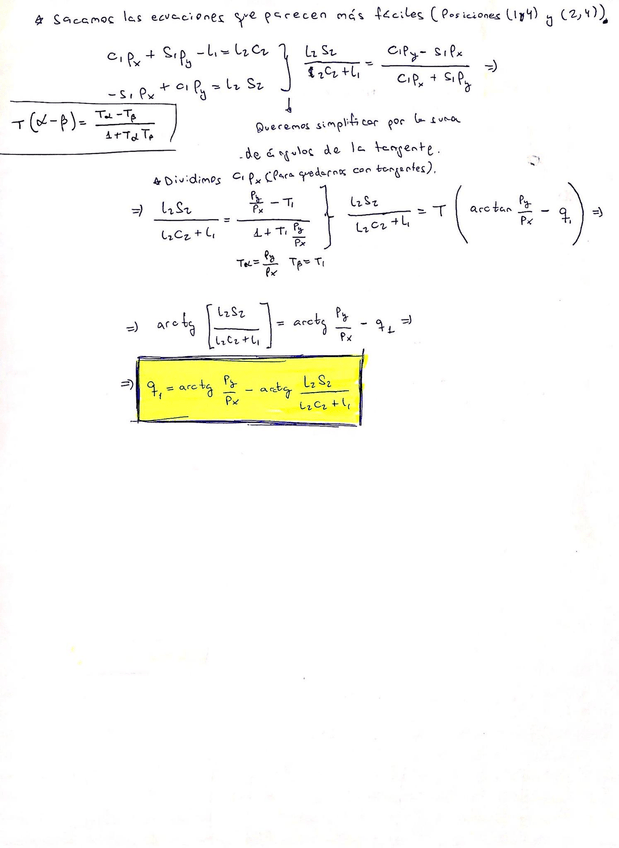 * Sacamos las ecuaciones que parecen más fáciles (Posiciones (1y4) y (2,4)).
C₁Px + S₁Py - L₁ = L₂C₂
-S₁Px + C₁Py = L₂S₂
L₂S₂ / (L₂C₂ + L₁) = (C₁Py - S₁Px) / (C₁Px + S₁Py) =>
T(α-β) = (Tα - Tβ) / (1 + TαTβ)
Queremos simplificar por la suma
de ángulos de la tangente.
* Dividimos C₁Px (Para quedarnos con tangentes).
=> L₂S₂ / (L₂C₂ + L₁) = (Py/Px - T₁) / (1 + T₁ Py/Px) } L₂S₂ / (L₂C₂ + L₁) = T(arctan Py/Px - q₁) =>
Tα = Py/Px Tβ = T₁
=> arctg [L₂S₂ / (L₂C₂ + L₁)] = arctg Py/Px - q₁ =>
=> q₁ = arctg Py/Px - actg L₂S₂ / (L₂C₂ + L₁)